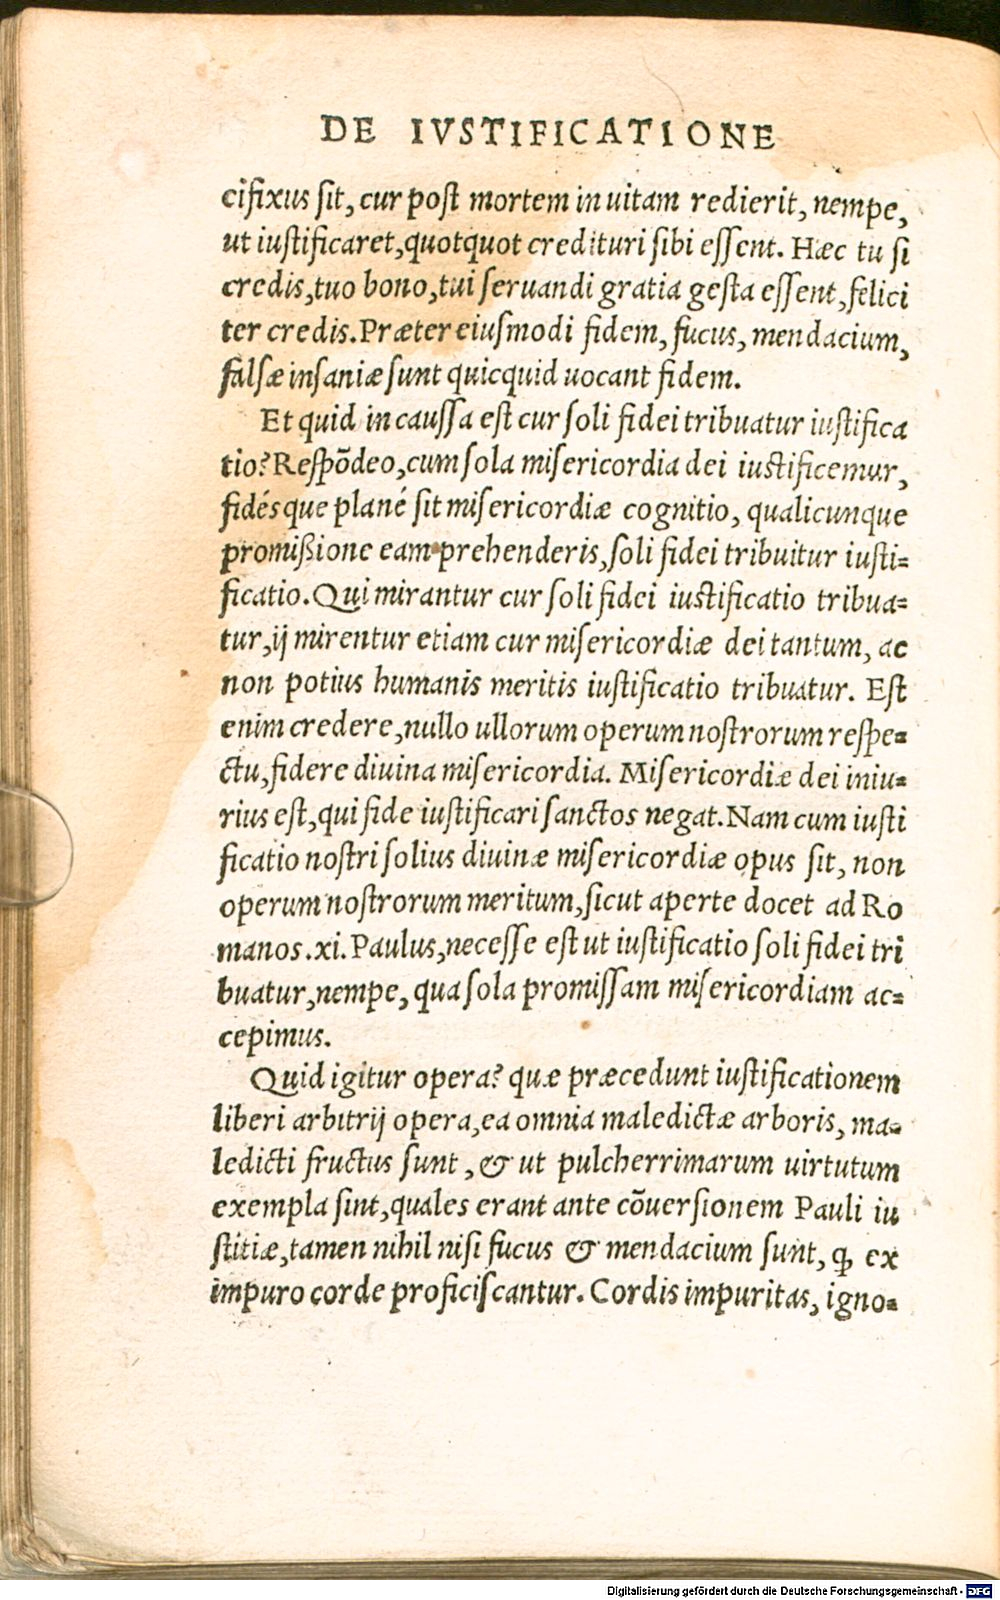 DE IVSTIFICATIONE
cifixus sit, cur post mortem in uitam redierit, nempe,
ut iustificaret, quotquot credituri sibi essent. Hæc tu si
credis, tuo bono, tui seruandi gratia gesta essent, felici
ter credis. Præter eiusmodi fidem, fucus, mendacium,
falsæ insaniæ sunt quicquid uocant fidem.
Et quid in caussa est cur soli fidei tribuatur iustifica
tio? Respõdeo, cum sola misericordia dei iustificemur,
fidésque plané sit misericordiæ cognitio, qualicunque
promißione eam prehenderis, soli fidei tribuitur iusti-
ficatio. Qui mirantur cur soli fidei iustificatio tribua-
tur, ij mirentur etiam cur misericordiæ dei tantum, ac
non potius humanis meritis iustificatio tribuatur. Est
enim credere, nullo ullorum operum nostrorum respe-
ctu, fidere diuina misericordia. Misericordiæ dei iniu-
rius est, qui fide iustificari sanctos negat. Nam cum iusti
ficatio nostri solius diuinæ misericordiæ opus sit, non
operum nostrorum meritum, sicut aperte docet ad Ro
manos .xi. Paulus, necesse est ut iustificatio soli fidei tri
buatur, nempe, qua sola promissam misericordiam ac-
cepimus.
Quid igitur opera? quæ præcedunt iustificationem
liberi arbitrij opera, ea omnia maledictæ arboris, ma-
ledicti fructus sunt, & ut pulcherrimarum uirtutum
exempla sint, quales erant ante cõuersionem Pauli iu
stitiæ, tamen nihil nisi fucus & mendacium sunt, ꝙ ex
impuro corde proficiscantur. Cordis impuritas, igno-
Digitalisierung gefördert durch die Deutsche Forschungsgemeinschaft - DFG